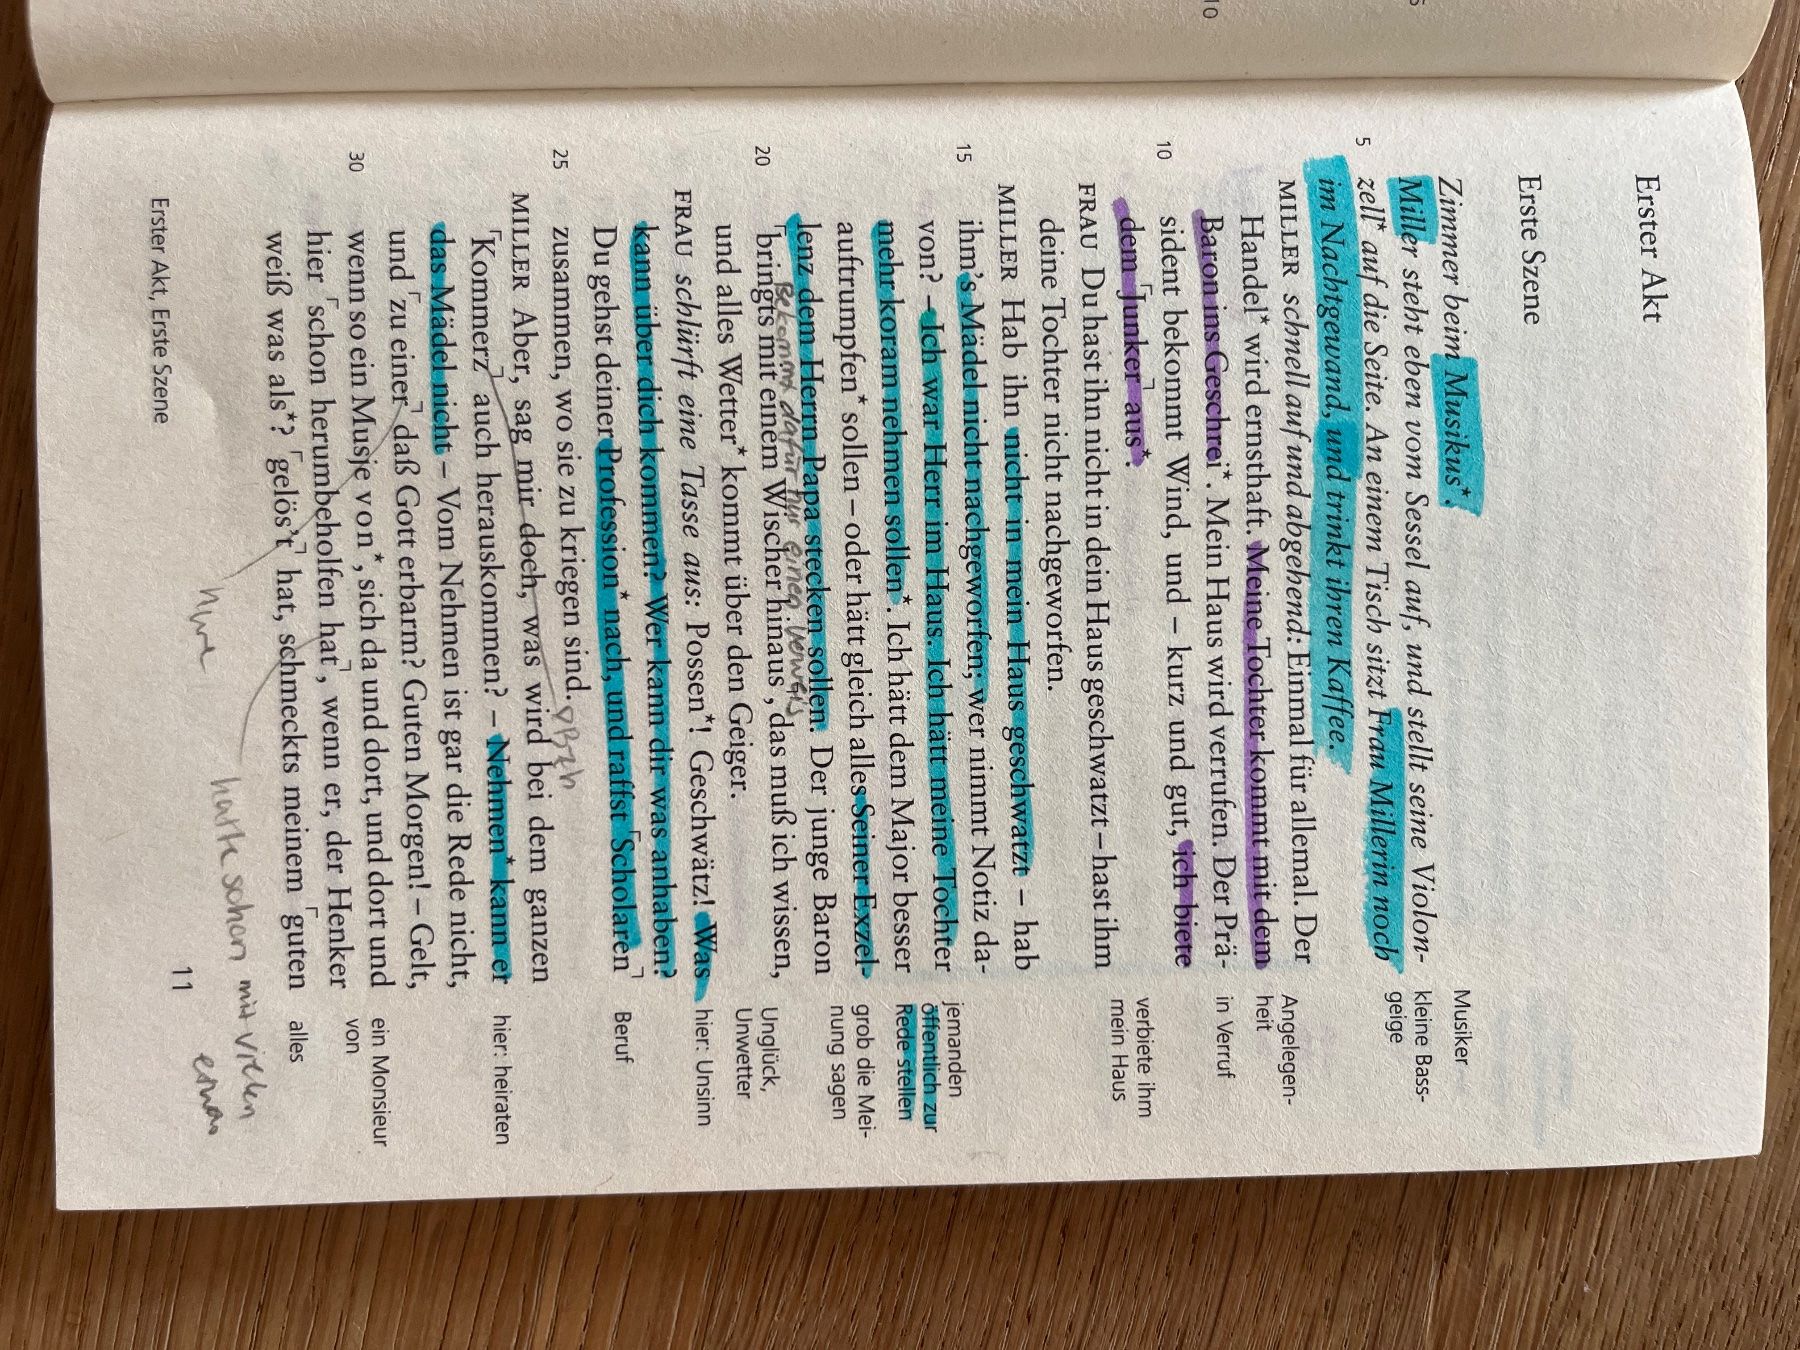 Erster Akt
Erste Szene
Zimmer beim Musikus*.
Miller steht eben vom Sessel auf, und stellt seine Violon-
zell* auf die Seite. An einem Tisch sitzt Frau Millerin noch
im Nachtgewand, und trinkt ihren Kaffee.
MILLER schnell auf und abgehend: Einmal für allemal. Der
Handel* wird ernsthaft. Meine Tochter kommt mit dem
Baron ins Geschrei*. Mein Haus wird verrufen. Der Prä-
sident bekommt Wind, und – kurz und gut, ich biete
dem ⌈Junker⌉ aus*.
FRAU Du hast ihn nicht in dein Haus geschwatzt – hast ihm
deine Tochter nicht nachgeworfen.
MILLER Hab ihn nicht in mein Haus geschwatzt – hab
ihm's Mädel nicht nachgeworfen; wer nimmt Notiz da-
von? – Ich war Herr im Haus. Ich hätt meine Tochter
mehr koram nehmen sollen*. Ich hätt dem Major besser
auftrumpfen* sollen – oder hätt gleich alles Seiner Exzel-
lenz dem Herrn Papa stecken sollen. Der junge Baron
bekommt dafür nur einen Verweis
⌈bringts mit einem Wischer hinaus⌉, das muß ich wissen,
und alles Wetter* kommt über den Geiger.
FRAU schlürft eine Tasse aus: Possen*! Geschwätz! Was
kann über dich kommen? Wer kann dir was anhaben?
Du gehst deiner Profession* nach, und raffst ⌈Scholaren⌉
zusammen, wo sie zu kriegen sind.
MILLER Aber, sag mir doch, was wird bei dem ganzen
⌈Kommerz⌉ auch herauskommen? – Nehmen* kann er
das Mädel nicht – Vom Nehmen ist gar die Rede nicht,
und ⌈zu einer⌉ daß Gott erbarm? Guten Morgen! – Gelt,
wenn so ein Musje von*, sich da und dort, und dort und
hier ⌈schon herumbeholfen hat⌉, wenn er, der Henker
weiß was als*? ⌈gelös't⌉ hat, schmeckts meinem ⌈guten
5
10
15
20
25
30
Musiker
kleine Bass-
geige
Angelegen-
heit
in Verruf
verbiete ihm
mein Haus
jemanden
öffentlich zur
Rede stellen
grob die Mei-
nung sagen
Unglück,
Unwetter
hier: Unsinn
Beruf
hier: heiraten
ein Monsieur
von
alles
Hure
hatte schon mit vielen
Erster Akt, Erste Szene
11
10